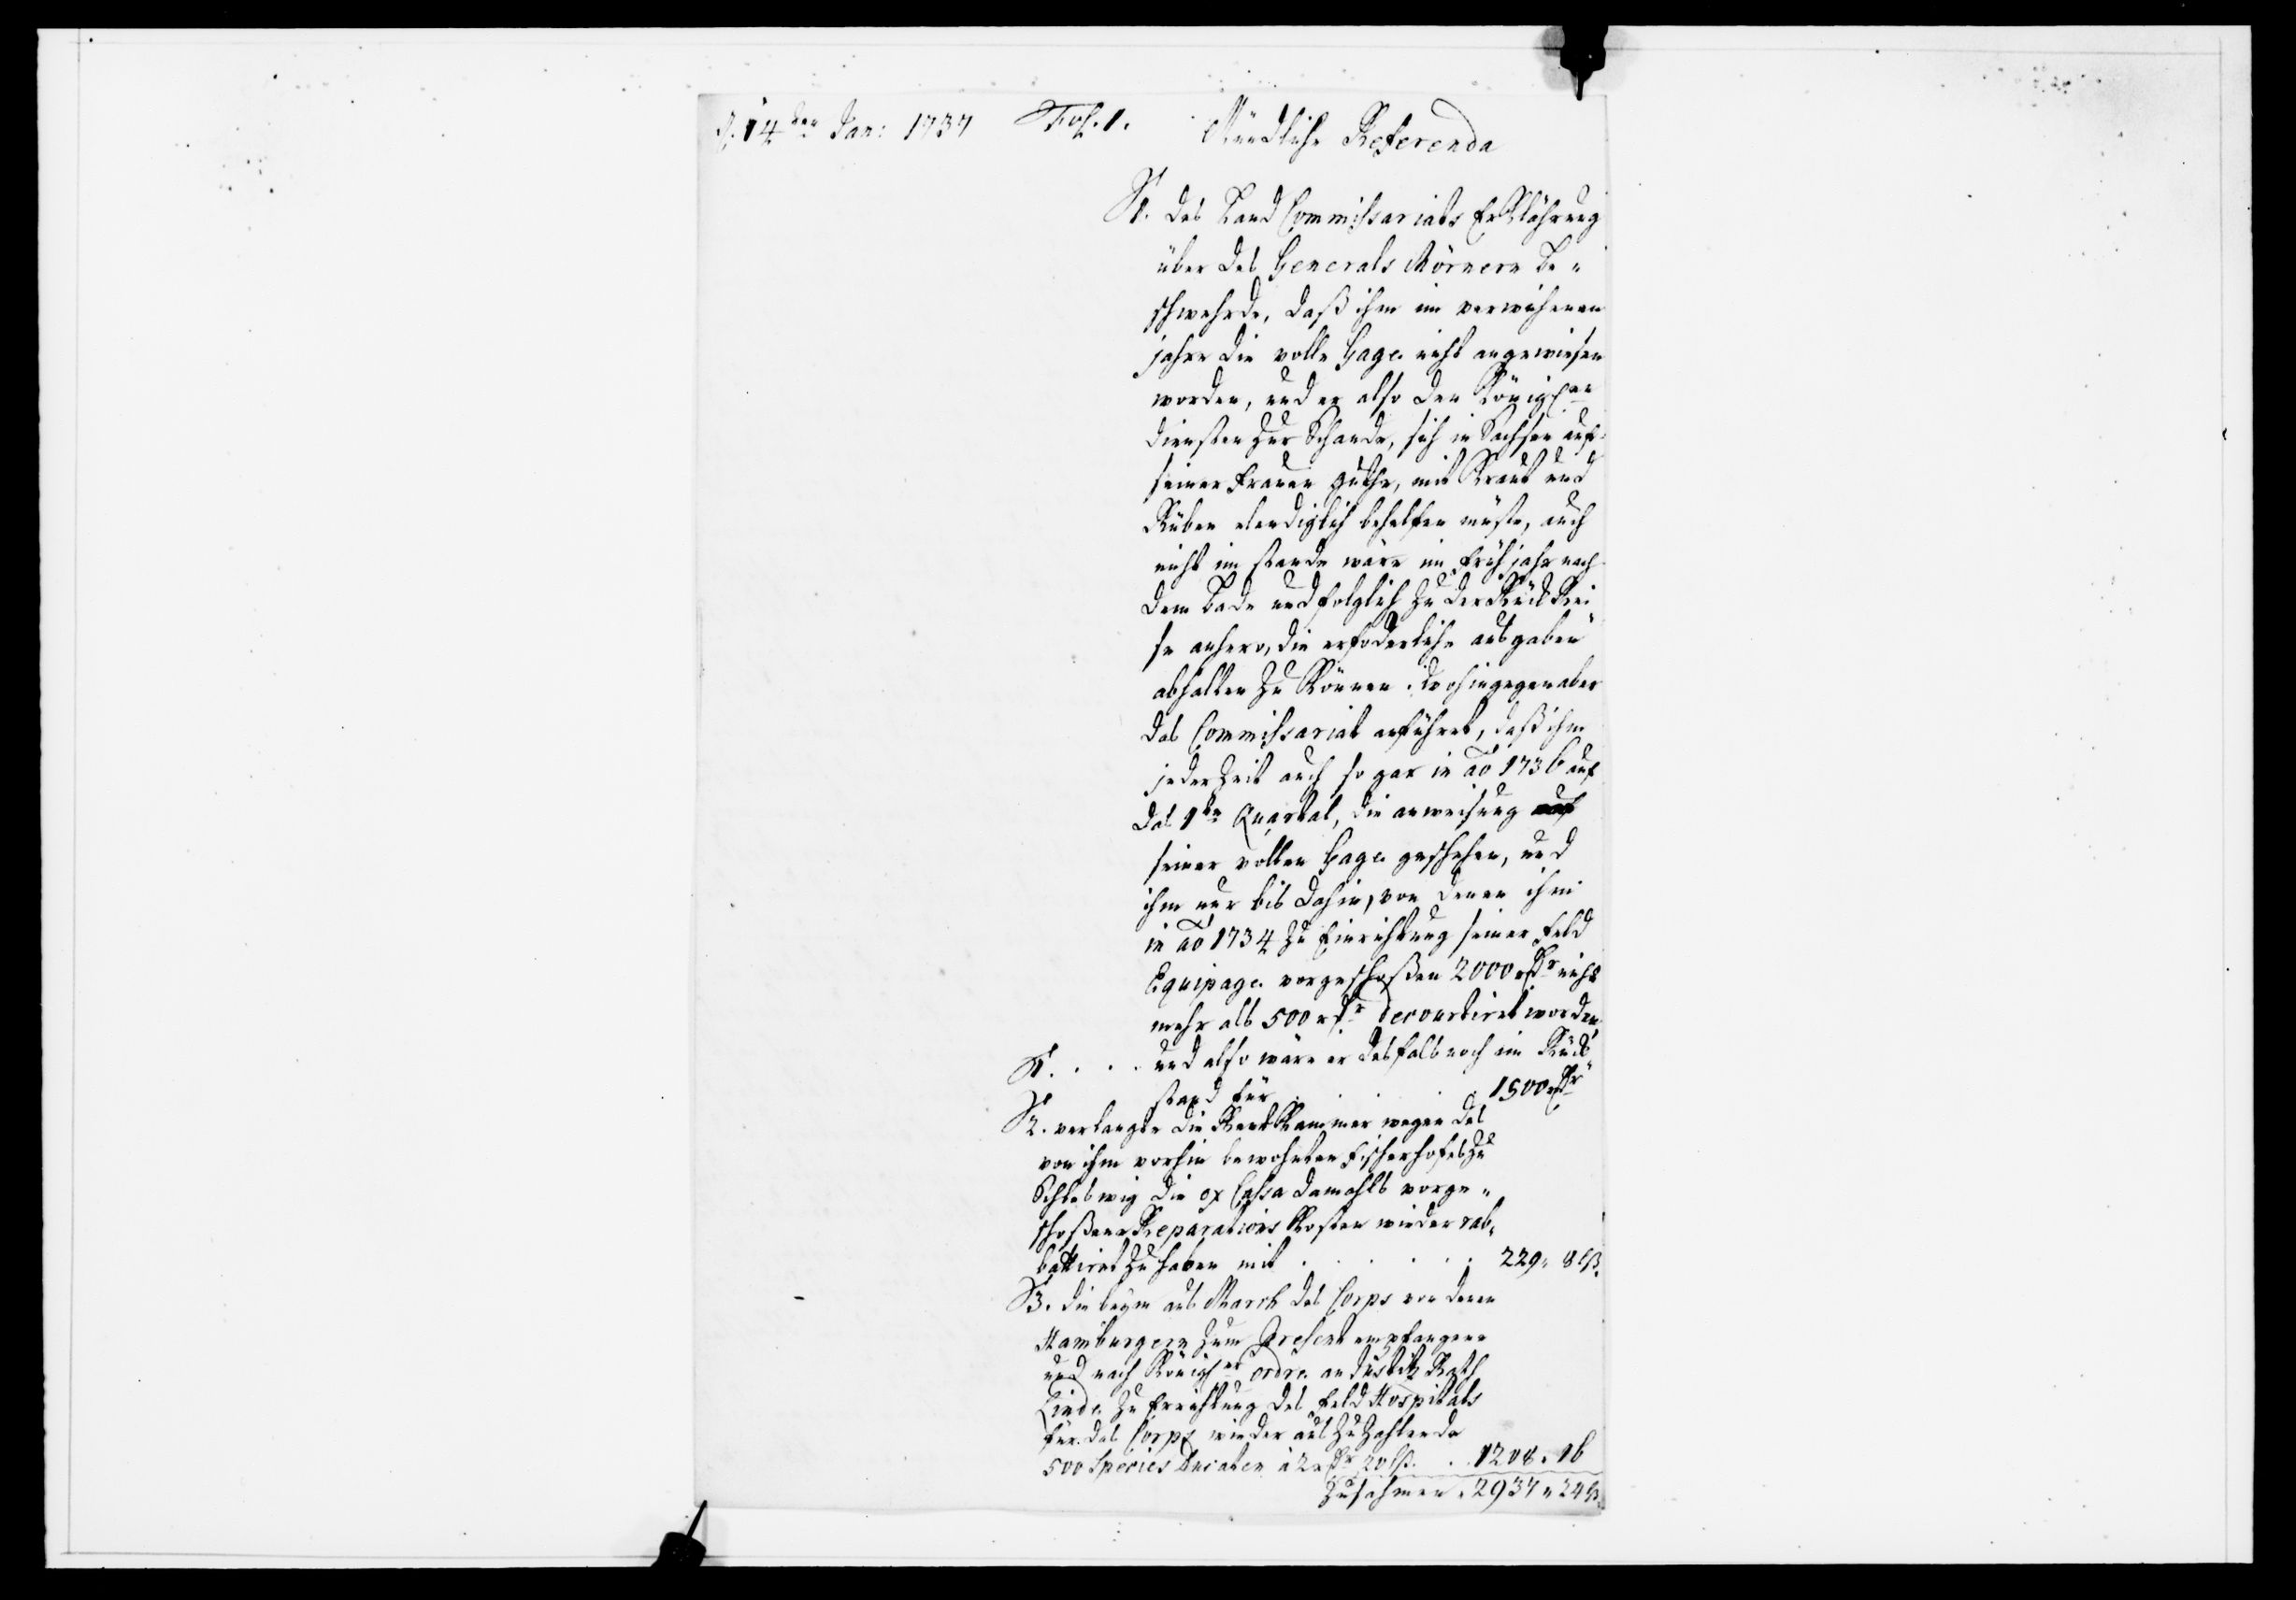 d. 14ten Jan: 1737 Fol. 1. Mündliche Referenda
1. des Land Commissariats Erklährung
über des Generals Mörnern Be-
schwehrde, daß ihm im verwichenen
jahre die volle Gage nicht angewiesen
worden, und er also den Königlen
diensten zur Schande, sich in Sachsen auf
seiner Frauen guthe, mit Kraut und
Rüben elendiglich behelfen müste, auch
nicht im stande wäre im Früh jahr nach
dem Bade und folglich zu der Rück Rei-
se anhero, die erfoderliche ausgaben
abhalten zu können. Wohingegen aber
das Commissariat anführet, daß ihm
jederzeit auch so gar in ao 1736 auf
das 1te Quartal, die anweisung
seiner vollen Gage geschehen, und
ihm nur bis dahin, von denen ihm
in ao 1734 zu Einrichtung seiner Feld
Equipage vorgeschoßen 2000 rdr nicht
mehr als 500 rdr decourtiret worden,
1. . . . und also wäre er desfals noch im Rück-
stand für . . . 1500 rdr
2. verlangte die Rent Kammer wegen des
von ihm vorhin bewohnten Fischerhofes zu
Schleswig die ex Cassa damahls vorge-
schoßene Reparations Kosten wieder rab-
battiret zu haben mit . . . . . 229 " 8 lß.
3. die beym aus March des Corps von denen
Hamburgern zum Present empfangene
und nach Königler ordre an Justitz Rath
Linde zu Errichtung des Feld Hospitals
für das Corps wieder aus zu zahlende
500 Species Ducaten à 2 rdr 20 lß. . . 1208 . 16
Zusahmen . 2937 " 24 ß.